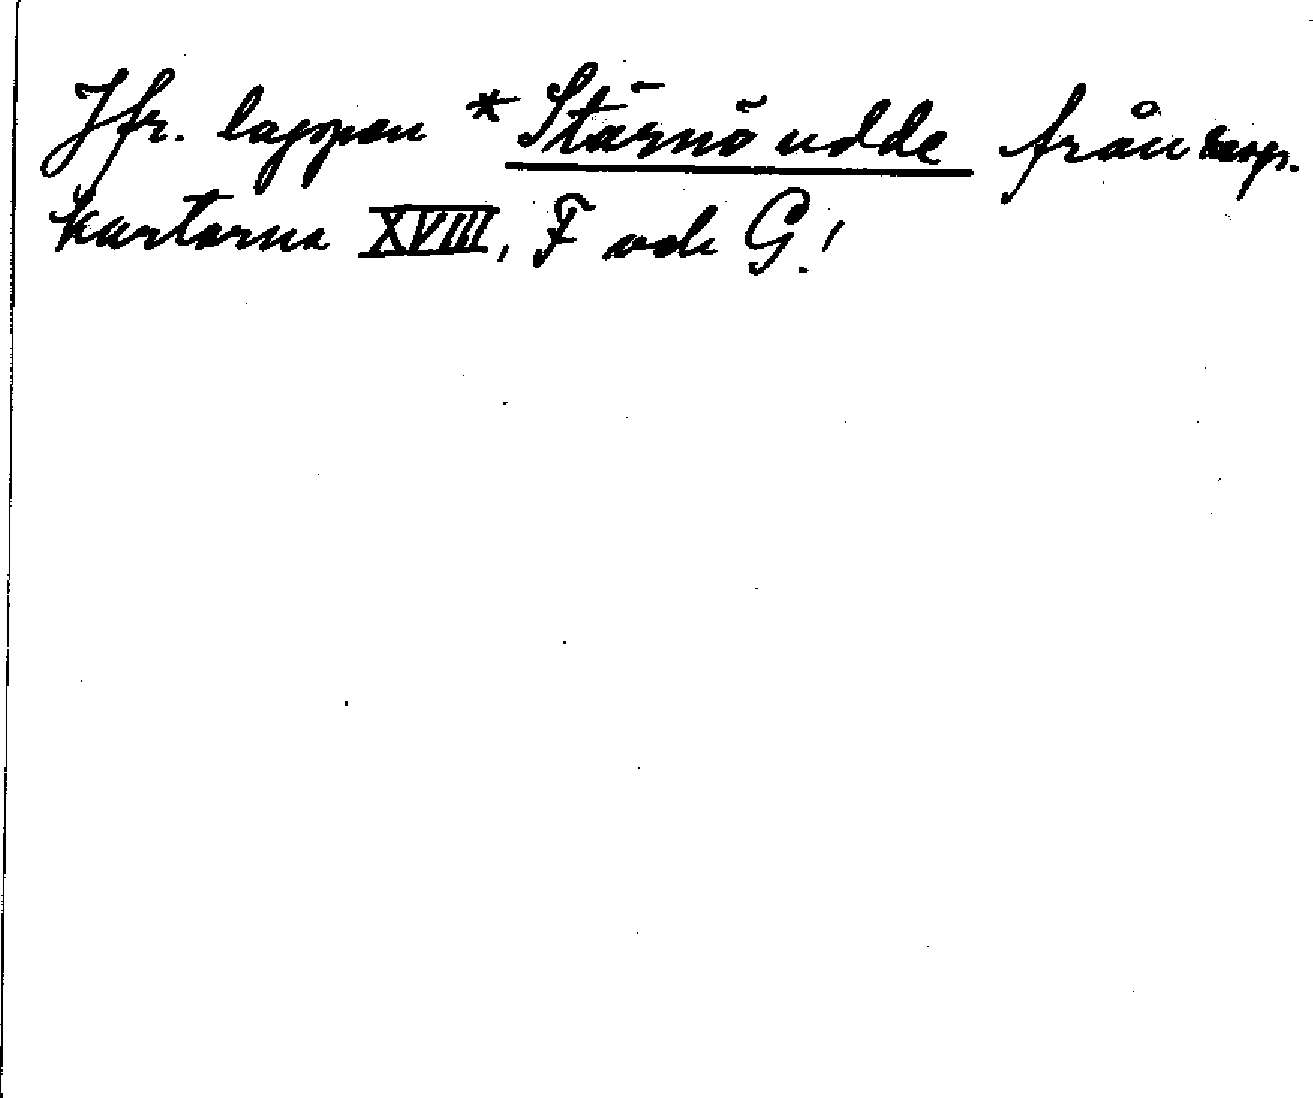 Jfr. lappen *Stärnö udde från resp.
kartorna XVIII, F och G!